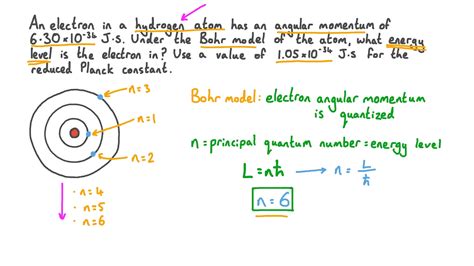 An electron in a hydrogen atom has an angular momentum of
6.30×10⁻³⁴ J.s. Under the Bohr model of the atom, what energy
level is the electron in? Use a value of 1.05×10⁻³⁴ J.s for the
reduced Planck constant.
n=3
n=1
n=2
· n=4
· n=5
· n=6
Bohr model: electron angular momentum
is quantized
n=principal quantum number=energy level
L=nħ → n = L/ħ
n=6